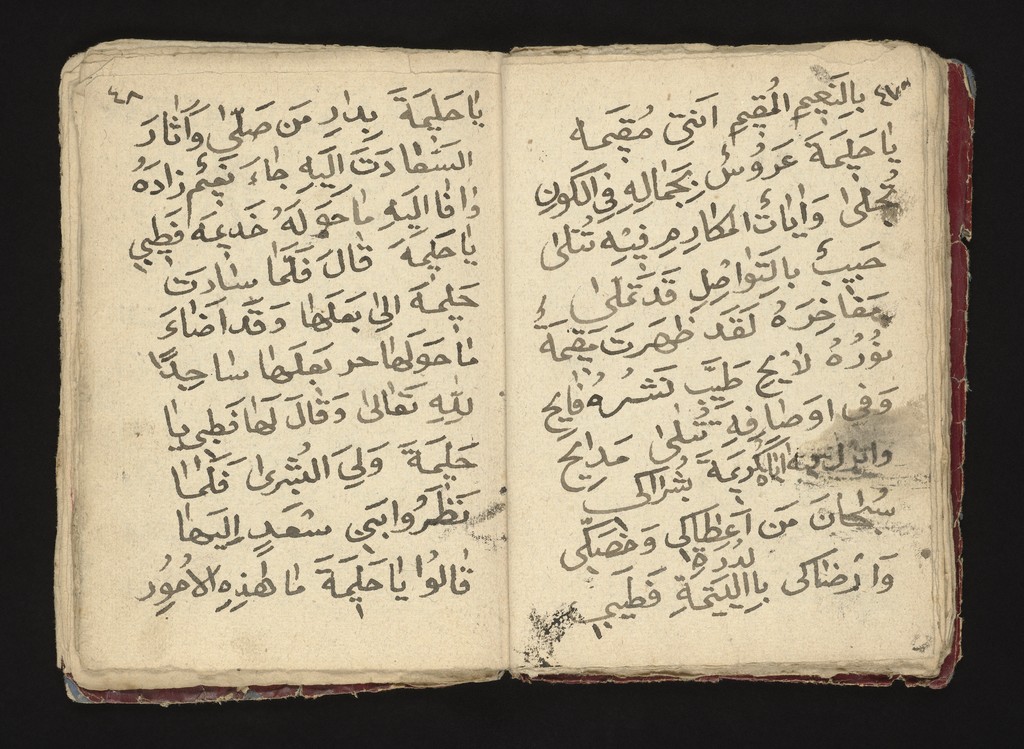 ٤٧
بِالنَعِيمِ المُقِيمِ انتِي مُقِيمه
يا حَلِيمَة عَرُوسُ بجَمالِهِ فِي الكَونِ
تُجلىٰ وَايَاتُ المكارِمِ فيِهِ تُتلىٰ
حَبيبُ بالتَواصُلِ قَد تملىٰ
مَفاخِرَهُ لَقَد ظَهَرَت مُقيمَةُ
نُورُهُ لائِح طَيّب نَشرُهُ فايح
وَفي اوصَافِهِ تُتلىٰ مَدايح
الكرِيمَة بُشراكي
سُبحانَ مَن اعطاكي وَخصَكي
لدُرَةِ
وَارضاكى بِاليَتيمَةِ فَطيبي
٤٨
يا حَليمَةَ بِدارِ مَن صَلّىٰ وَاثارَ
السَعادَتَ الَيهِ جاءَ نَعِيُم زادَهُ
وافا الَيهِ ما حَولَهُ خَديمَه فَطيبي
يا حَليمَة قالَ فَلَمّا سارَت
حَليمَة الىٰ بَعلَها وَقَد اضاءَ
ما حَولَها خر بَعلَها ساجِدًا
لِلّهِ تَعالىٰ وَقالَ لَها فَطيبي يا
حَليمَة وَلي البُشرىٰ فَلَمّا
نَظَرُوا بَني سَعَدٍ اِلَيها
قالُوا يا حَليمَة ما هٰذِهِ الامُورُ